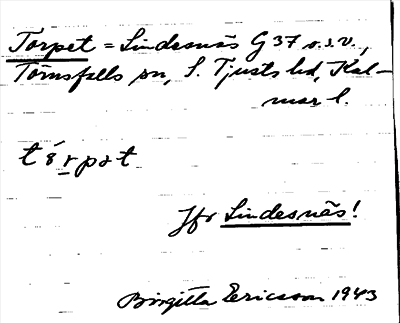 Torpet = Lindesnäs G 37 o.s.v.,
Törnsfalls sn, S. Tjusts hd, Kal-
mar l.
tórpət
Jfr Lindesnäs!
Birgitta Ericsson 1943